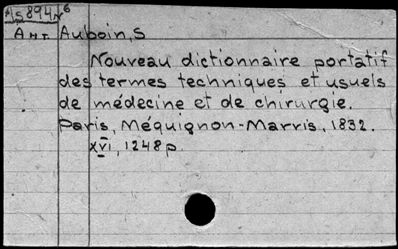 *S894N6
Ант. Auboin, S
Nouveau dictionnaire portatif
des termes techniques et usuels
de médecine et de chirurgie.
Paris, Méquignon-Marvis, 1832.
XVI, 1248p.